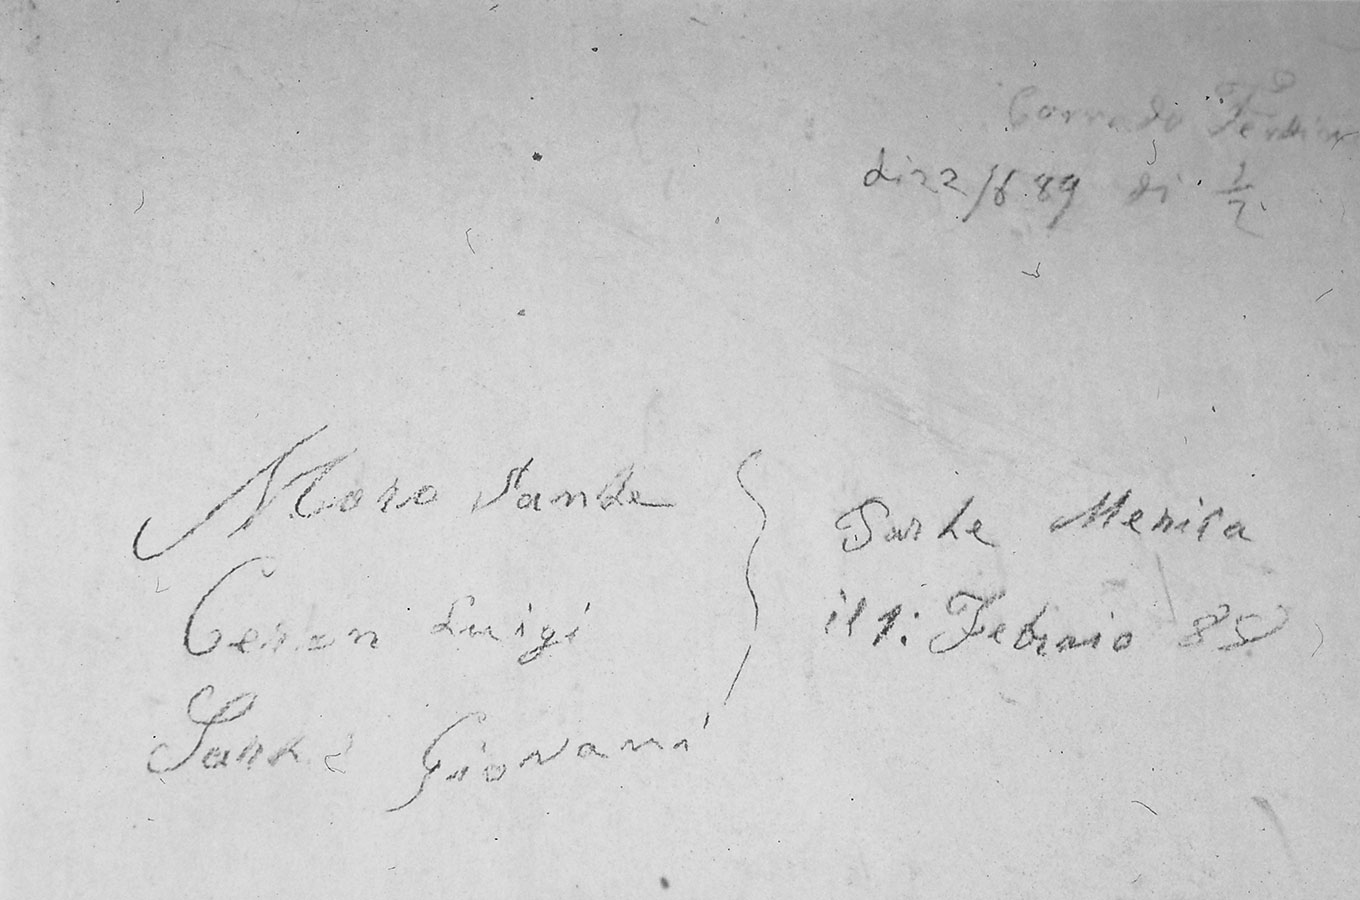 Corrado
di 22/6 89 di 1/2
Moro Sante
Ceron Luigi
Sarte Giovani
Sarte Menica
il 1: Febraio 85